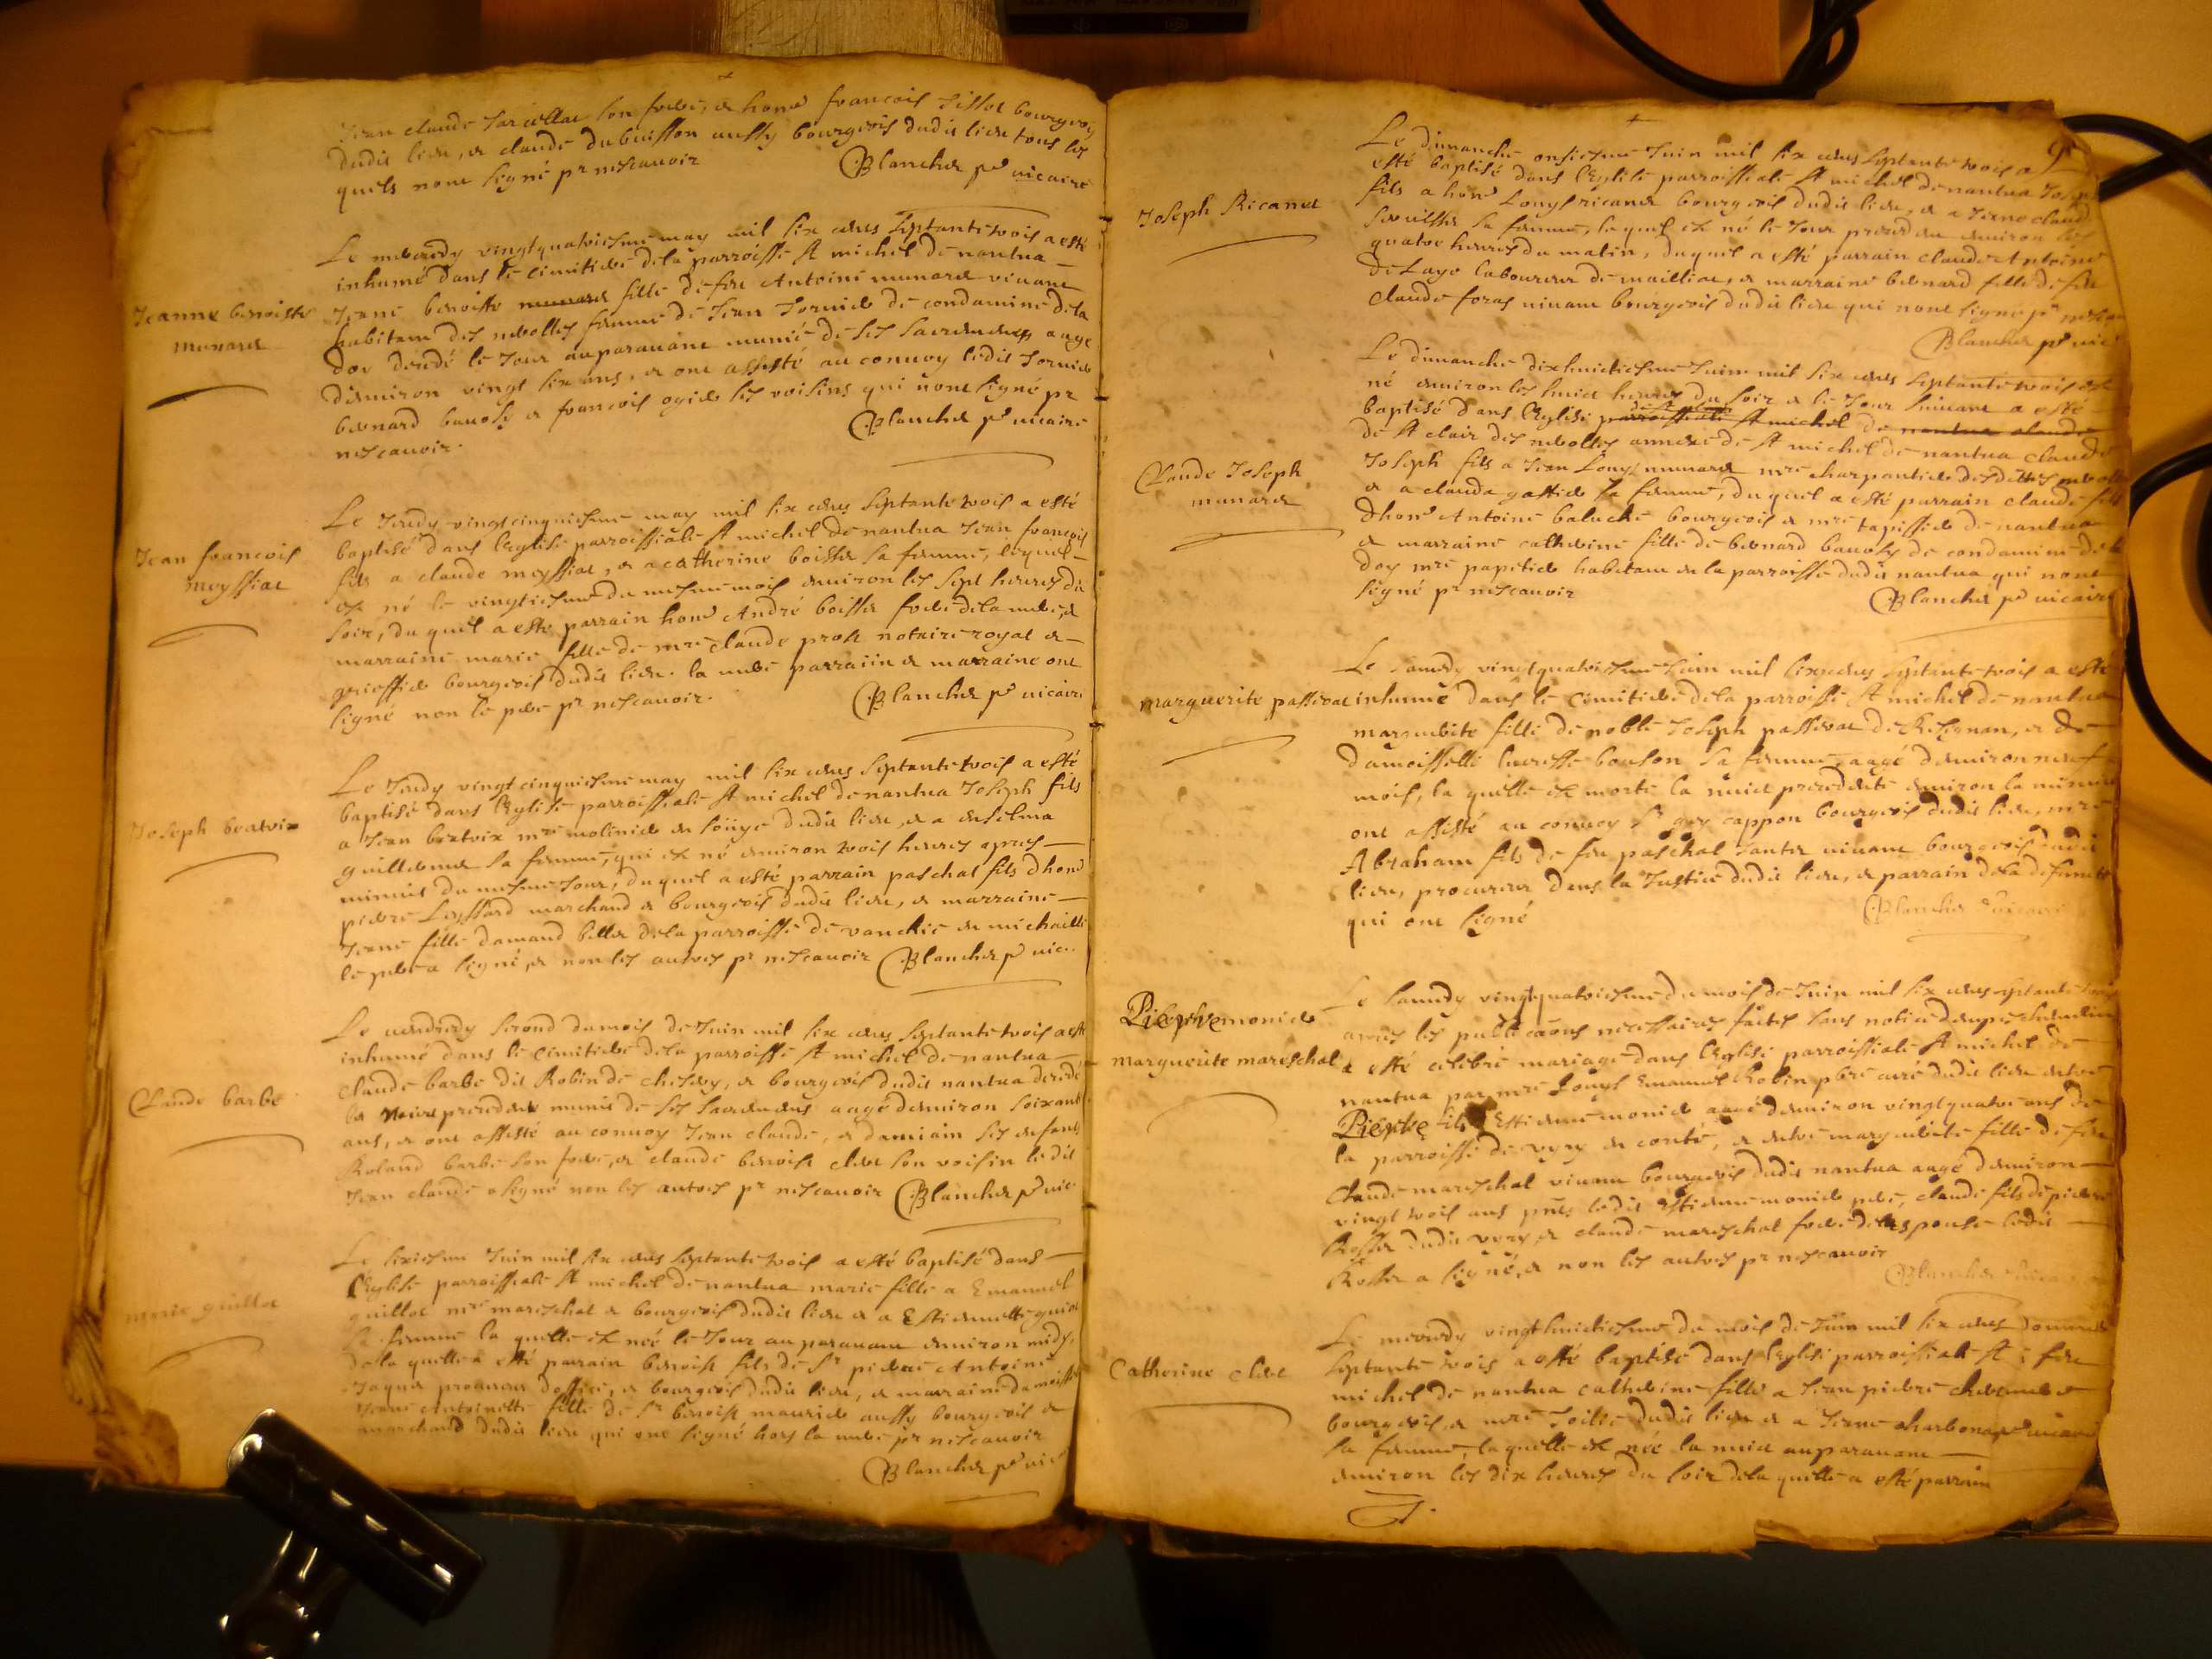 Jean claude Jarcellat son frere, et honore francois Tissot bourgeois
dudit lieu, et claude dubuisson aussy bourgeois dudit lieu tous les
quels nont signé pr nescauoir Blanchet pre uicaire
Le mecredy vingtquatriesme may mil six cens septante trois a esté
inhumé dans le cimitiere dela parroisse St michel de nantua
Jeanne benoiste
munard
Jeane benoiste munard fille de feu Antoine munard viuant
habitant des nerolles femme de Jean Tornier de condamine dela
doy decedé le Jour auparauant munie de ses sacrements aage
denuiron vingt six ans, et ont assisté au conuoy ledit Tornier
bernard bauosy et francois ogier ses voisins qui nont signé pr
nescauoir. Blanchet pre uicaire
Le Jeudy vingtcinquiesme may mil six cens septante trois a esté
Jean francois
meyssiat
baptisé dans leglise parroissiale St michel de nantua Jean francois
fils a claude meyssiat, et a catherine boisset sa femme, lequel
est né le vingtiesme du mesme mois enuiron les sept heures du
soir, du quel a esté parrain honore André boisset frere dela mere, et
marraine marie fille de mre claude prost notaire royal et
grieffier bourgeois dudit lieu. la mere parrain et marraine ont
signé non le pere pr nescauoir. Blanchet pre uicaire
Le Jeudy vingtcinquiesme may mil six cens septante trois a esté
Joseph bertrix
baptisé dans leglise parroissiale St michel de nantua Joseph fils
a Jean bertrix mre molinier en soiiye dudit lieu, et a anselma
guillermet sa femme, qui est né enuiron trois heures apres
minuit du mesme Jour, du quel a esté parrain paschal fils dhonore
pierre Leyssard marchand et bourgeois dudit lieu, et marraine
Jeane fille damand bellet dela parroisse de vanchie en michaille
le pere a signé, et non les autres pr nescauoir Blanchet pre uic.
Le uendredy second du mois de Juin mil six cens septante trois a esté
inhumé dans le cimitiere dela parroisse St michel de nantua
Claude barbe
claude barbe dit Robin de chesery, et bourgeois dudit nantua decedé
la nuict precedente munis de ses sacrements aagé denuiron soixante
ans, et ont assisté au conuoy Jean claude, et damiain ses enfants
Roland barbe son frere, et claude benoist clere son voisin ledit
Jean claude a signé non les autres pr nescauoir Blanchet pre uic
Le sixiesme Juin mil six cens septante trois a esté baptisé dans
marie guillot
leglise parroissiale St michel de nantua marie fille a Emanuel
guillot mre mareschal et bourgeois dudit lieu et a Estiennette guiot
sa femme la quelle est née le Jour auparauant enuiron midy,
dela quelle a esté parrain benoist fils de Sr pierre Antoine
Jagnet procureur doffice, et bourgeois dudit lieu, et marraine damoiselle
Jeane Antoinette fille de Sr benoist maurier aussy bourgeois et
marchand dudit lieu qui ont signé hors la mere pr nescauoir
Blanchet pre uic
9
Le dimanche onsiesme Juin mil six cens septante trois a
esté baptisé dans leglise parroissiale St michel de nantua Joseph
Joseph Ricanet
fils a honore Louys ricanet bourgeois dudit lieu, et a Jeane claude
sa femme, le quel est né le Jour precedent enuiron les
quatre heures du matin, duquel a esté parrain claude Antoine
de Laye laboureur de mailliat, et marraine bernard fille de feu
claude foras uiuant bourgeois dudit lieu qui nont signé pr nescauoir
Blanchet pre uic
Le dimanche dixhuictiesme Juin mil six cens septante trois est
né enuiron les huict heures du soir et le Jour suiuant a esté
baptisé dans leglise parroissiale St michel de nantua claude
Claude Joseph
munard
de St clair des nerolles annexe de St michel de nantua claude
Joseph fils a Jean Louys munard mre charpantier desdittes nerolles
et a clauda gottier sa femme, du quel a esté parrain claude fils
dhonore Antoine baluche bourgeois et mre tapissier de nantua
et marraine catherine fille de bernard bauosy de condamine dela
doy mre papetier habitant en la parroisse dudit nantua qui nont
signé pr nescauoir Blanchet pre uicaire
Le samedy vingtquatriesme Juin mil six cens septante trois a esté
marguerite passerat
inhumé dans le cimitiere dela parroisse St michel de nantua
marguerite fille de noble Joseph passerat de Resignan, et de
damoisselle lucresse bouson sa femme, aagé denuiron neuf
mois, la quelle est morte la nuict precedente enuiron la minuit
ont assisté au conuoy Sr guy cappon bourgeois dudit lieu, mre
Abraham fils de feu paschal Jantet uiuant bourgeois dudit
lieu, procureur dans la Justice dudit lieu, et parrain dela defunte
qui ont signé Blanchet uicaire
Le samedy vingtquatriesme du mois de Juin mil six cens septante trois
Pierre monier
marguerite mareschal
apres les publicaons necessaires faites sans notice dempeschement
a esté celebré mariage dans leglise parroissiale St michel de
nantua par mre Louys Emanuel Robin pbre curé dudit lieu entre
Pierre fils Estienne monier aagé denuiron vingtquatre ans de
la parroisse de vyry en conté, et entre marguerite fille de feu
claude mareschal viuant bourgeois dudit nantua aagé denuiron
vingt trois ans pnts ledit estienne monier pere, claude fils de pierre
Rosset dudit vyry, et claude mareschal frere de lespouse ledit
Rosset a signé, et non les autres pr nescauoir
Blanchet uicaire
Le mecredy vingthuictiesme du mois de Juin mil six cens
Catherine clere
septante trois a esté baptisé dans leglise parroissiale St
michel de nantua catherine fille a Jean pierre clere
bourgeois, et mre dudit lieu et a Jeane charbonet
sa femme, la quelle est née la nuict auparauant
enuiron les dix heures du soir dela quelle a esté parrain